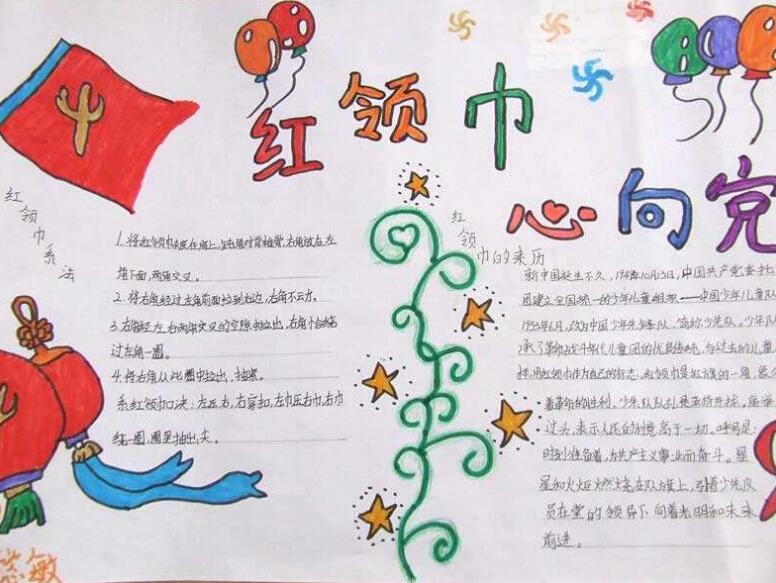 红领巾
心向党
红领巾系法
1.将红领巾披在肩上,钝角对脊椎骨,右角放在左
角下面,两角交叉。
2.将右角经过左角前面拉到右边,右角不云方。
3.右角经左右两角交叉的空隙中拉出,右角恰绕
过左角一圈。
4.将右角从此圈中拉出,抽紧。
系红领巾口决:左压右,右穿扣,左巾压右巾,右巾
绕一圈,圈里抽出尖。
红领巾的来历
新中国诞生不久,1949年10月13日,中国共产党委托
团建立全国统一的少年儿童组织——中国少年儿童队
1953年6月,改为中国少年先锋队,简称少先队。少年队
承了革命战斗年代儿童团的优良传统,与过去的儿童
样,用红领巾作为自己的标志,红领巾是红旗的一角,是
着革命的胜利。少先队队礼是五指并拢,高举
过头,表示人民的利益高于一切。呼号是:
时刻准备着,为共产主义事业而奋斗。星
星和火炬燃烧在队旗上,引着少先队
员在党的领导下向着光明和未来
前进。
敏